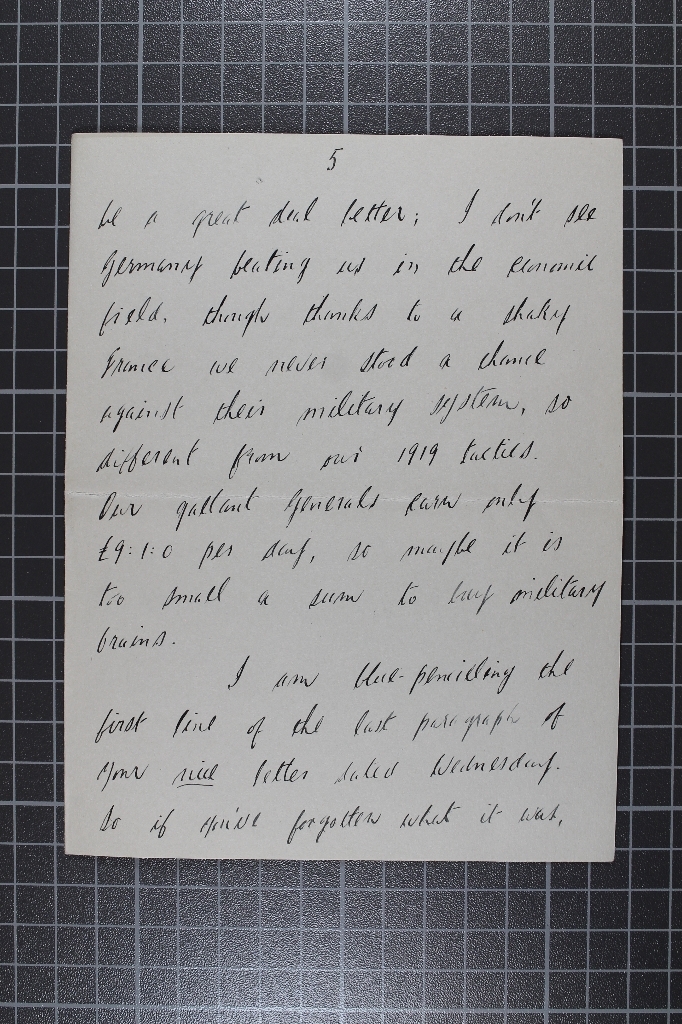 5
be a great deal better; I don't see
Germany beating us in the economic
field, though thanks to a shaky
France we never stood a chance
against their military system, so
different from our 1919 tactics.
Our gallant Generals earn only
£9:1:0 per day, so maybe it is
too small a sum to buy military
brains.
I am blue-pencilling the
first line of the last paragraph of
your nice letter dated Wednesday.
So if you've forgotten what it was,